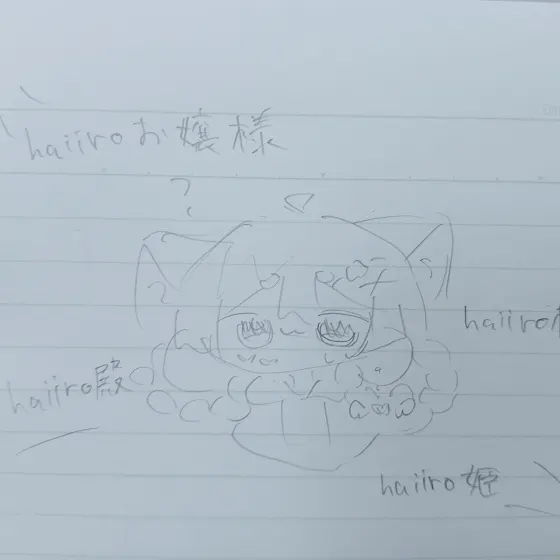 haiiroお嬢様
haiiro殿
haiiro姫